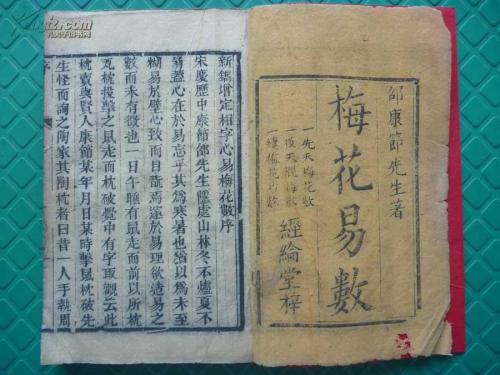 邵康節先生著
梅花易數
一先天梅花數
一後天觀梅數
一續梅花易數
經綸堂梓
新鐫增定相字心易梅花數序
宋慶歷中康節邵先生隱處山林冬不爐夏不
扇蓋心在於易忘乎其為寒暑也猶以為未至
糊易於壁心致而目翫焉邃於易理欲造易之
數而未有徵也一日午睡有鼠走而前以所枕
瓦枕投擊之鼠走而枕破覺中有字取觀云此
枕賣與賢人康節某年月日某時擊鼠枕破先
生怪而詢之陶家其陶枕者曰昔一人手執周
序